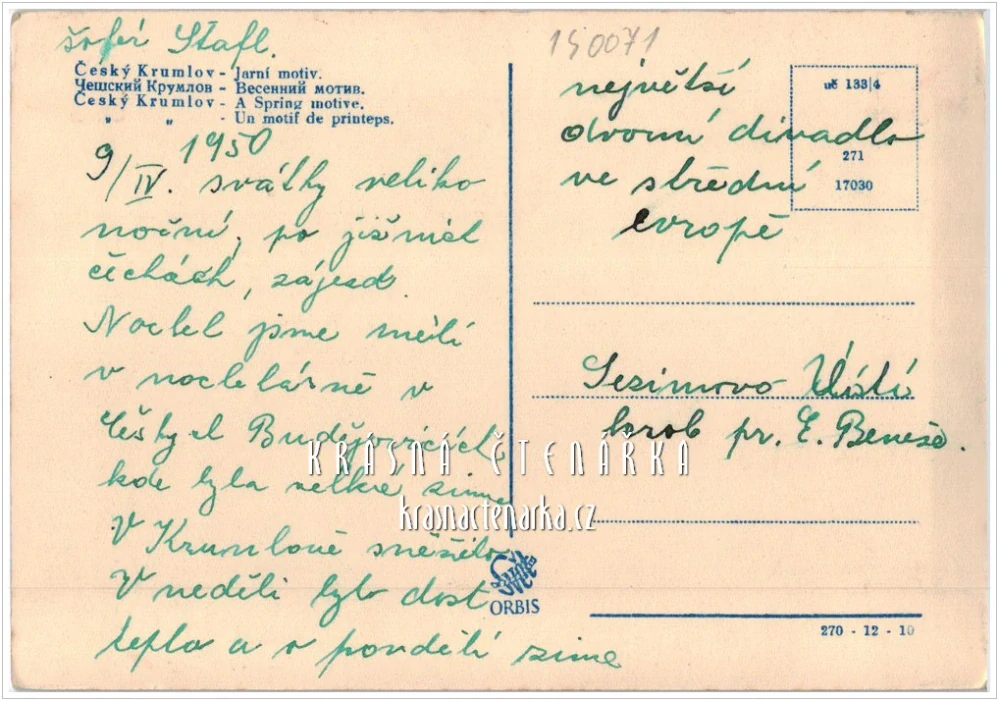 šofér Štafl.
Český Krumlov - Jarní motiv.
Чешский Крумлов - Весенний мотив.
Český Krumlov - A Spring motive.
" " - Un motif de printeps.
9/IV. 1950
svátky veliko
noční, po jižních
čechách, zájezd.
Nocleh jsme měli
v noclehárně v
Českých Budějovicích
kde byla velká zima
V Krumlově sněžilo
V neděli bylo dost
tepla a v pondělí zima
150071
největší
dvorní divadlo
ve střední
evropě
uč 133|4
271
17030
Sezimovo Ústí
hrob pr. E. Beneše.
KRÁSNÁ ČTENÁŘKA
krasnactenarka.cz
ORBIS
270 - 12 - 10